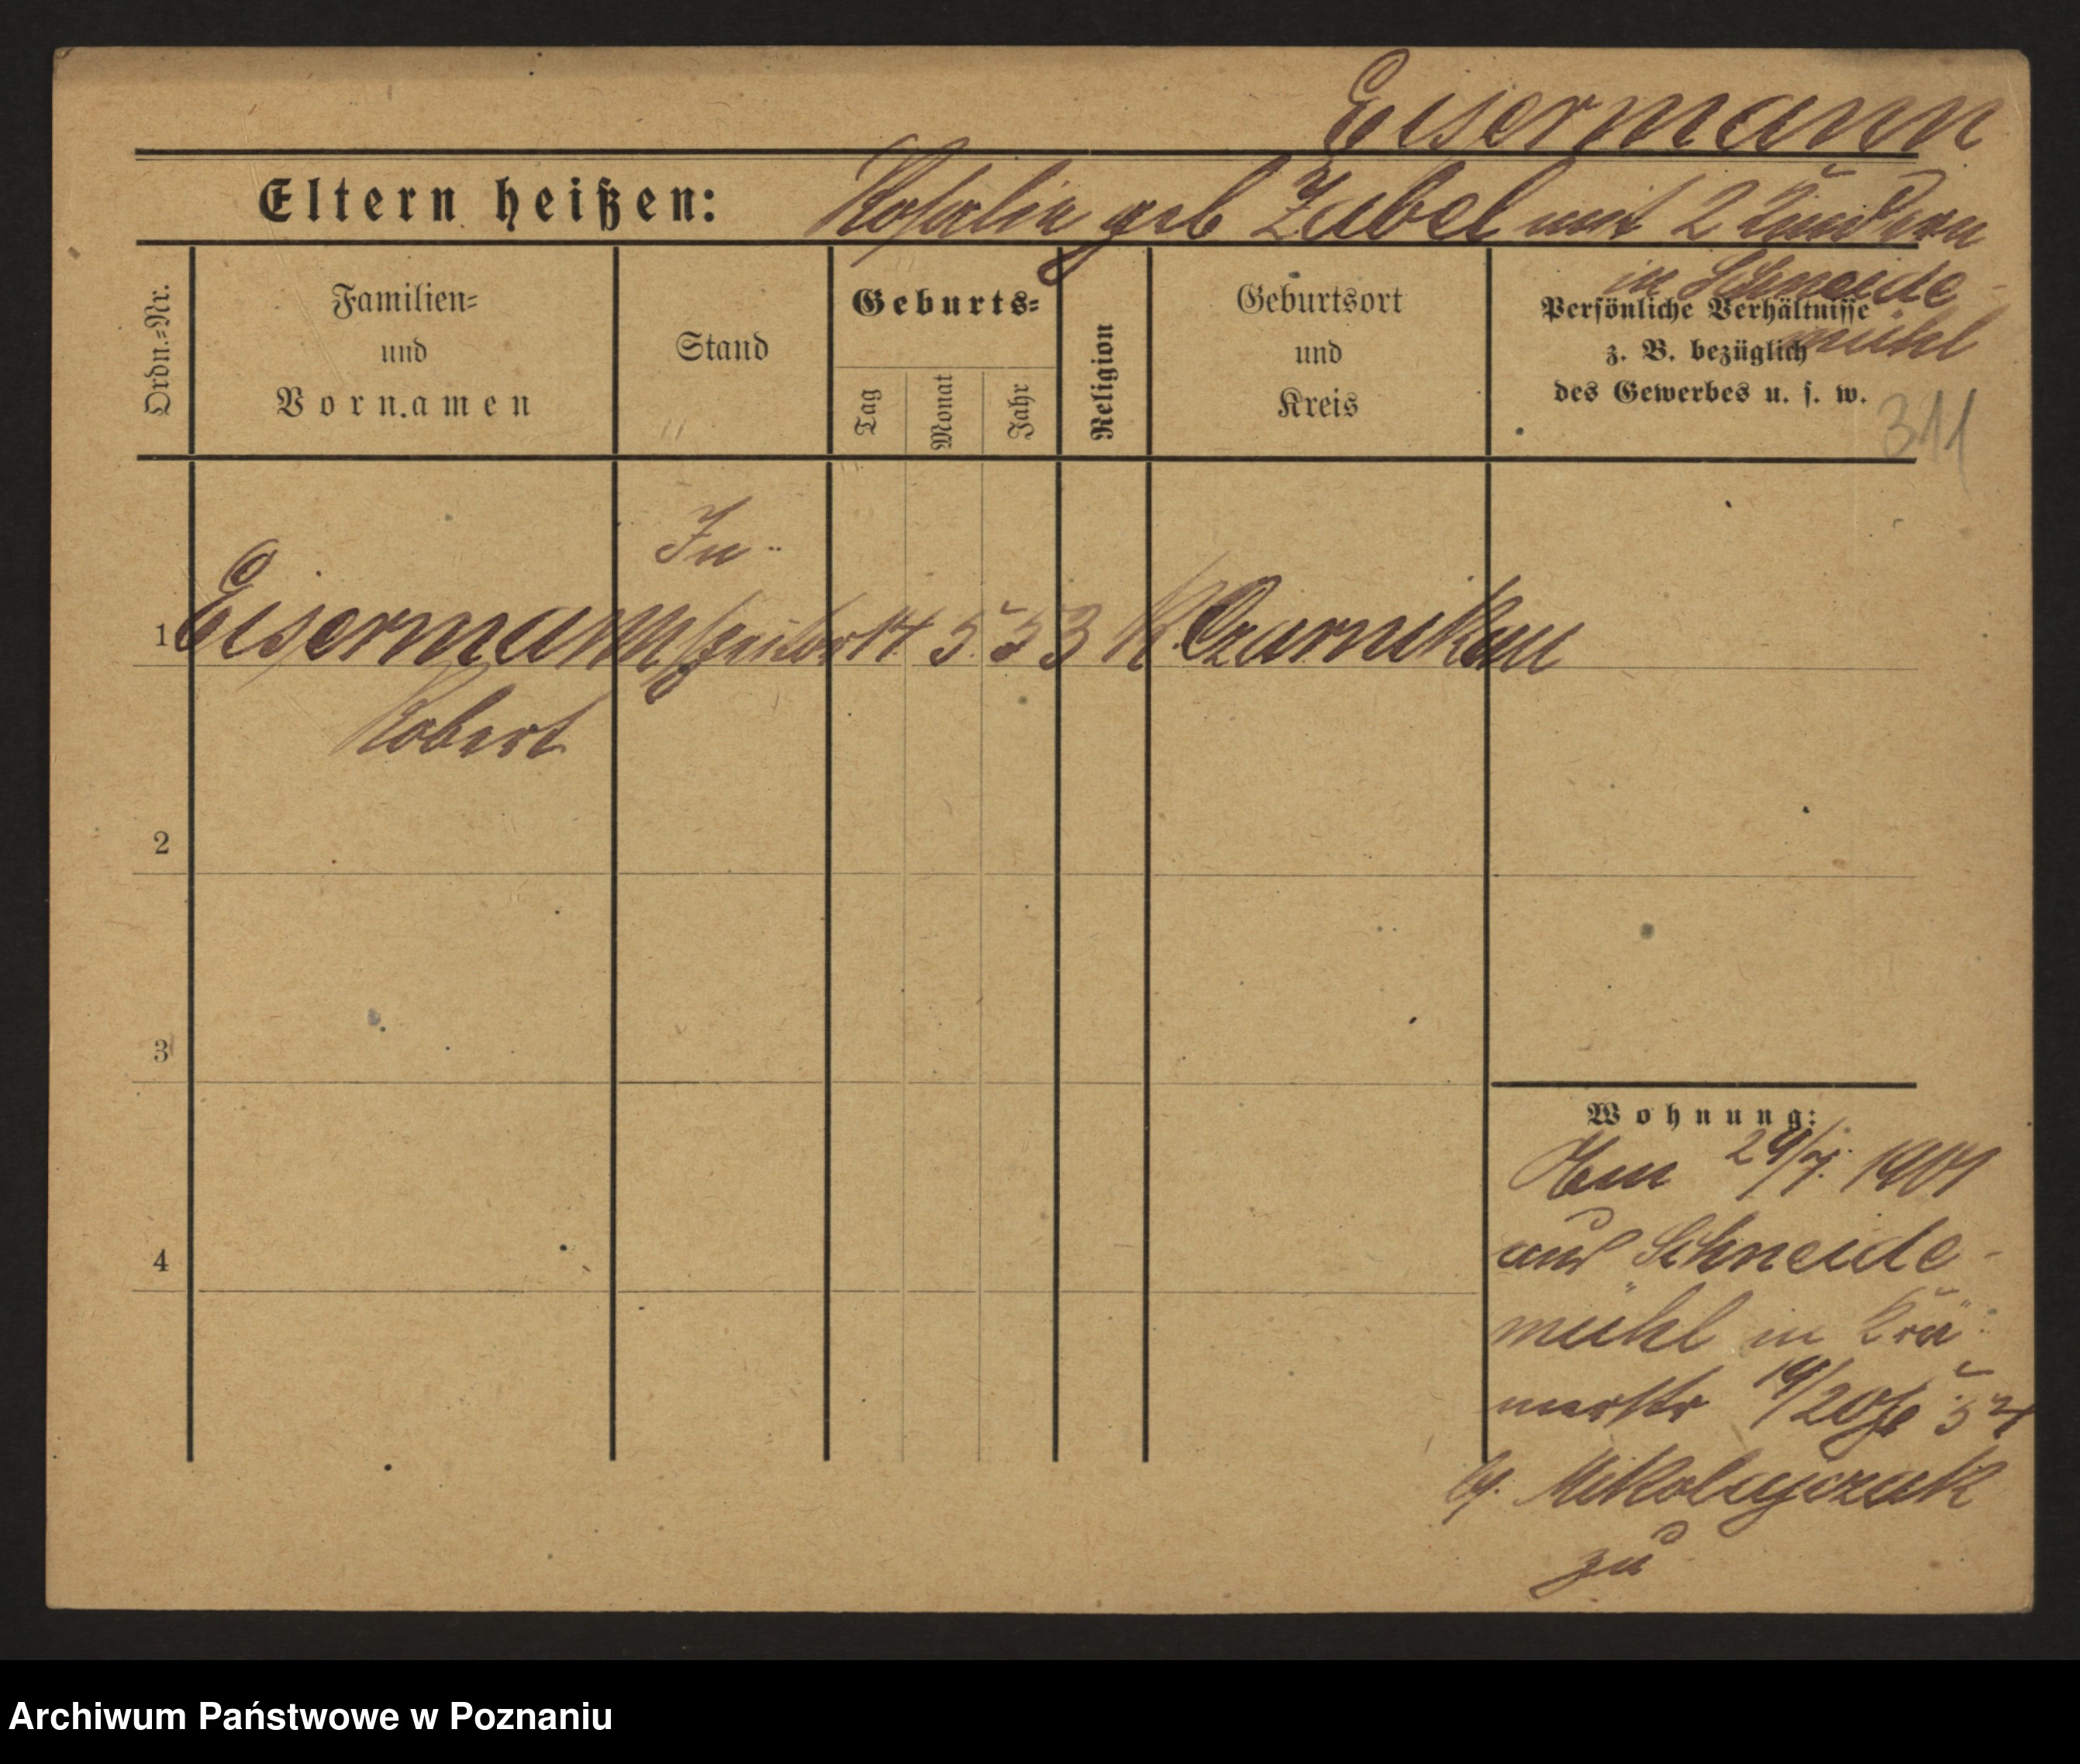 Eisermann
Eltern heißen: Rosalie geb Zabel mit 2 Kindern
in Schneide-
mühl
Ordn.=Nr.
Familien=
und
Vornamen
Stand
Geburts=
Tag
Monat
Jahr
Religion
Geburtsort
und
Kreis
Persönliche Verhältnisse
z. B. bezüglich
des Gewerbes u. s. w.
311
1 Eisermann 14 5. 53 K. Czarnikau
Robert
2
3
4
Wohnung:
1901
aus Schneide-
mühl in Krä-
merstr 19/20
Mikolajczak
zu
Archiwum Państwowe w Poznaniu